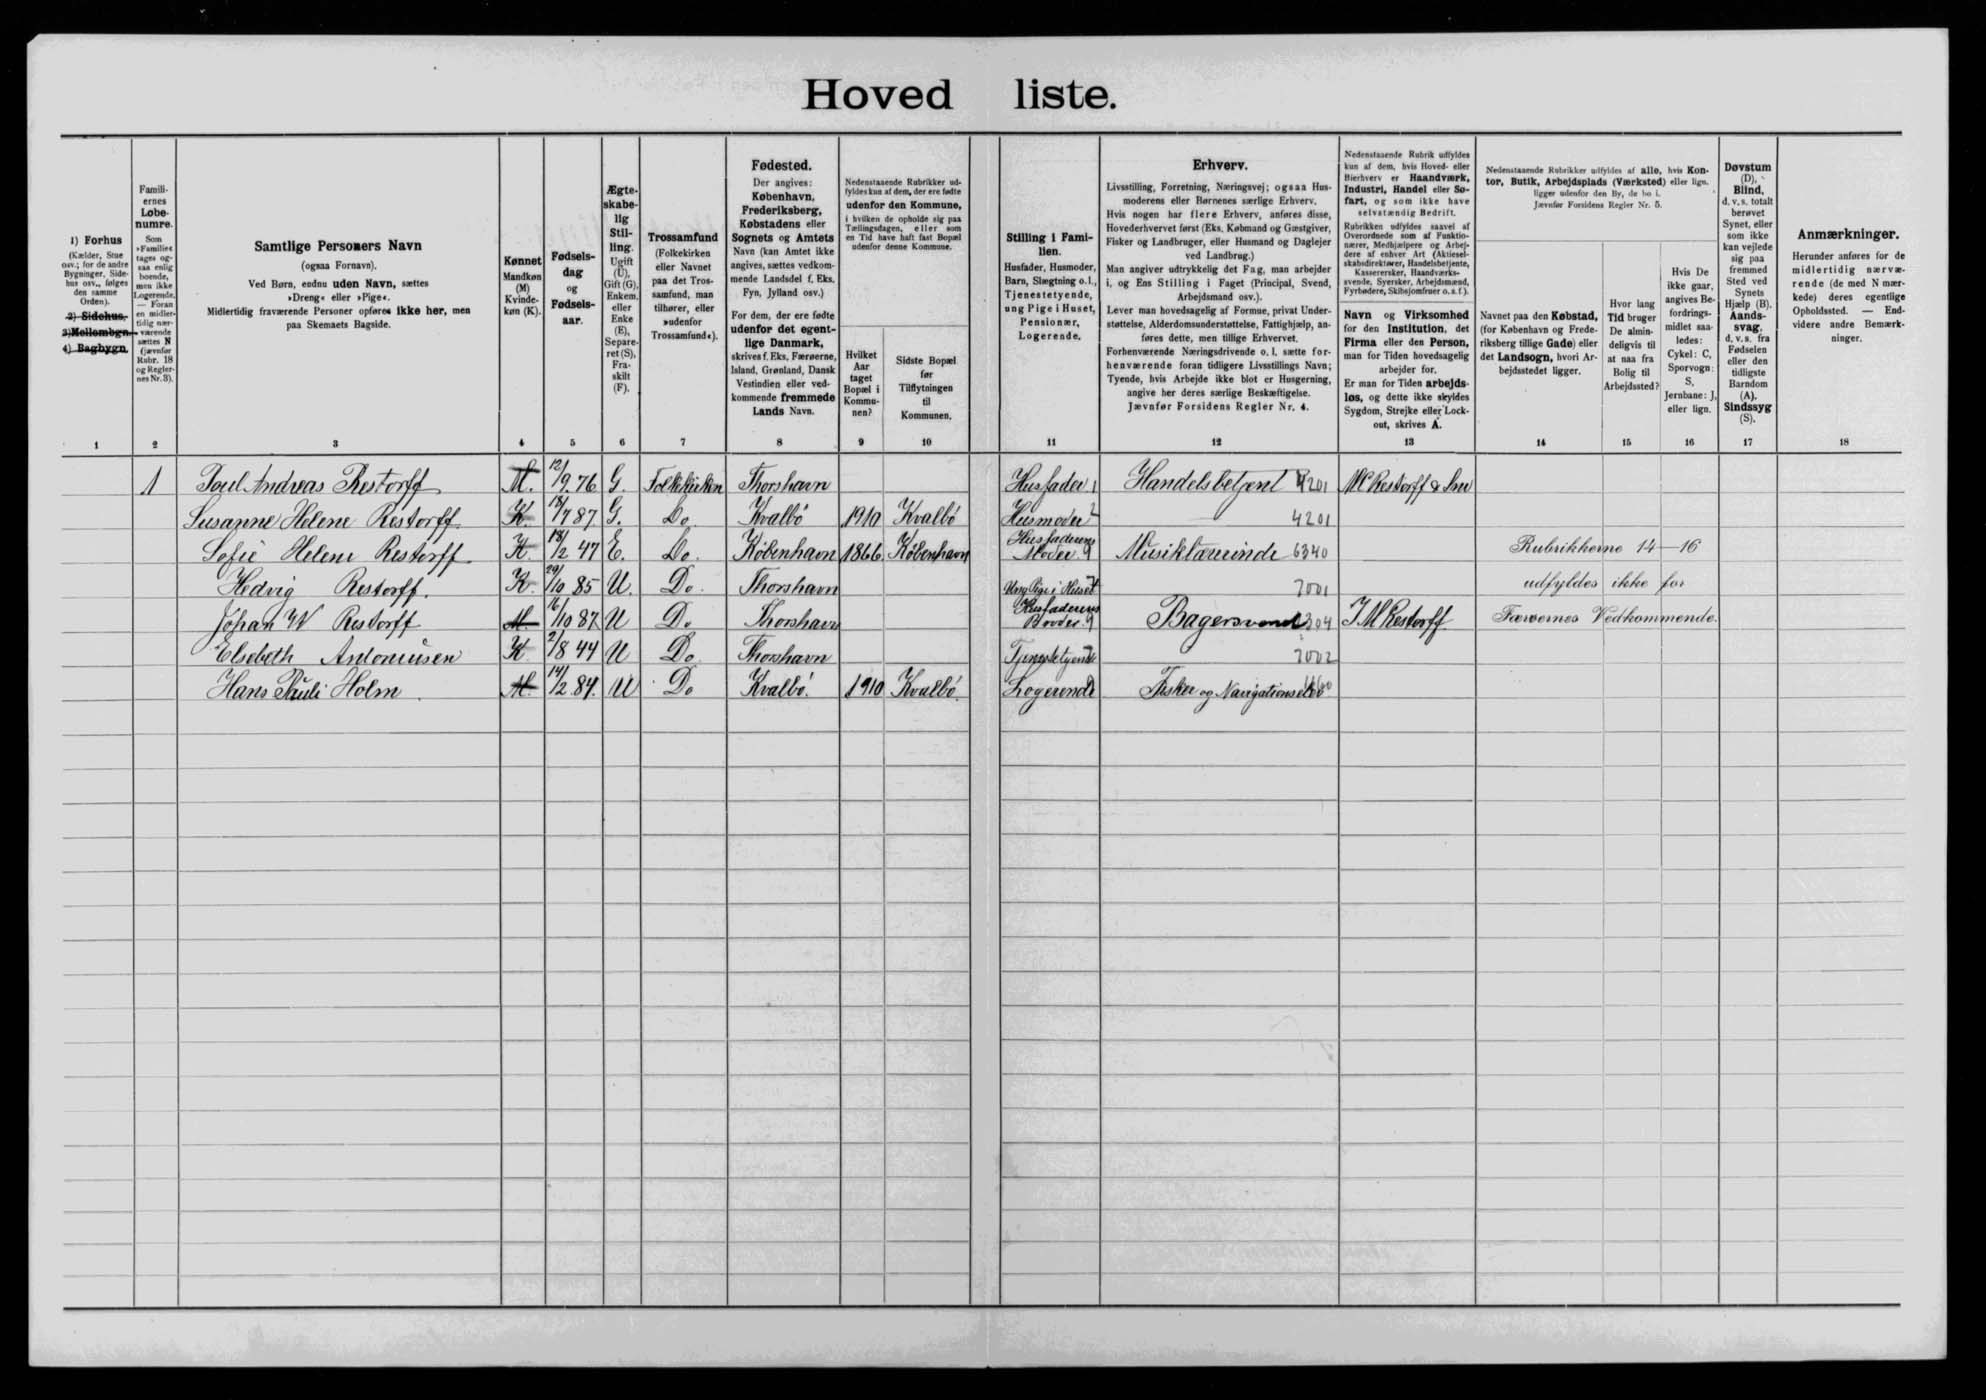 Hoved liste.
1) Forhus
(Kælder, Stue
osv.; for de andre
Bygninger, Side-
hus osv., følges
den samme
Orden).
2) Sidehus.
3) Mellembgn.
4) Bagbygn.
1
Famili-
ernes
Løbe-
numre.
Som
»Familie«
tages og-
saa enlig
boende,
men ikke
Logerende.
— Foran
en midler-
tidig nær-
værende
sættes N
(jævnfør
Rubr. 18
og Regler-
nes Nr. 3).
2
Samtlige Personers Navn
(ogsaa Fornavn).
Ved Børn, endnu uden Navn, sættes
»Dreng« eller »Pige«.
Midlertidig fraværende Personer opføres ikke her, men
paa Skemaets Bagside.
3
Kønnet
Mandkøn
(M)
Kvinde-
køn (K).
4
Fødsels-
dag
og
Fødsels-
aar.
5
Ægte-
skabe-
lig
Stil-
ling.
Ugift
(U),
Gift (G),
Enkem.
eller
Enke
(E),
Separe-
ret (S),
Fra-
skilt
(F).
6
Trossamfund
(Folkekirken
eller Navnet
paa det Tros-
samfund, man
tilhører, eller
»udenfor
Trossamfund«).
7
Fødested.
Der angives:
København,
Frederiksberg,
Købstadens eller
Sognets og Amtets
Navn (kan Amtet ikke
angives, sættes vedkom-
mende Landsdel f. Eks.
Fyn, Jylland osv.)
For dem, der ere fødte
udenfor det egent-
lige Danmark,
skrives f. Eks. Færøerne,
Island, Grønland, Dansk
Vestindien eller ved-
kommende fremmede
Lands Navn.
8
Nedenstaaende Rubrikker ud-
fyldes kun af dem, der ere fødte
udenfor den Kommune,
i hvilken de opholde sig paa
Tællingsdagen, eller som
en Tid have haft fast Bopæl
udenfor denne Kommune.
Hvilket
Aar
taget
Bopæl i
Kommu-
nen?
9
Sidste Bopæl
før
Tilflytningen
til
Kommunen.
10
Stilling i Fami-
lien.
Husfader, Husmoder,
Barn, Slægtning o.l.,
Tjenestetyende,
ung Pige i Huset,
Pensionær,
Logerende.
11
Erhverv.
Livsstilling, Forretning, Næringsvej; ogsaa Hus-
moderens eller Børnenes særlige Erhverv.
Hvis nogen har flere Erhverv, anføres disse,
Hovederhvervet først (Eks. Købmand og Gæstgiver,
Fisker og Landbruger, eller Husmand og Daglejer
ved Landbrug.)
Man angiver udtrykkelig det Fag, man arbejder
i, og Ens Stilling i Faget (Principal, Svend,
Arbejdsmand osv.).
Lever man hovedsagelig af Formue, privat Under-
støttelse, Alderdomsunderstøttelse, Fattighjælp, an-
føres dette, men tillige Erhvervet.
Forhenværende Næringsdrivende o. l. sætte for-
henværende foran tidligere Livsstillings Navn;
Tyende, hvis Arbejde ikke blot er Husgerning,
angive her deres særlige Beskæftigelse.
Jævnfør Forsidens Regler Nr. 4.
12
Nedenstaaende Rubrik udfyldes
kun af dem, hvis Hoved- eller
Bierhverv er Haandværk,
Industri, Handel eller Sø-
fart, og som ikke have
selvstændig Bedrift.
Rubrikken udfyldes saavel af
Overordnede som af Funktio-
nærer, Medhjælpere og Arbej-
dere af enhver Art (Aktiesel-
skabsdirektører, Handelsbetjente,
Kassererske, Haandværks-
svende, Syersker, Arbejdsmænd,
Fyrbødere, Skibsjomfruer o.s.f.).
Navn og Virksomhed
for den Institution, det
Firma eller den Person,
man for Tiden hovedsagelig
arbejder for.
Er man for Tiden arbejds-
løs, og dette ikke skyldes
Sygdom, Strejke eller Lock-
out, skrives A.
13
Nedenstaaende Rubrikker udfyldes af alle, hvis Kon-
tor, Butik, Arbejdsplads (Værksted) eller lign.
ligger udenfor den By, de bo i.
Jævnfør Forsidens Regler Nr. 5.
Navnet paa den Købstad,
(for København og Frede-
riksberg tillige Gade) eller
det Landsogn, hvori Ar-
bejdsstedet ligger.
14
Hvor lang
Tid bruger
De almin-
deligvis til
at naa fra
Bolig til
Arbejdssted?
15
Hvis De
ikke gaar,
angives Be-
fordrings-
midlet saa-
ledes:
Cykel: C,
Sporvogn:
S,
Jernbane: J,
eller lign.
16
Døvstum
(D),
Blind,
d. v. s. totalt
berøvet
Synet, eller
som ikke
kan vejlede
sig paa
fremmed
Sted ved
Synets
Hjælp (B).
Aands-
svag,
d. v. s. fra
Fødselen
eller den
tidligste
Barndom
(A).
Sindssyg
(S).
17
Anmærkninger.
Herunder anføres for de
midlertidig nærvæ-
rende (de med N mær-
kede) deres egentlige
Opholdssted. — End-
videre andre Bemærk-
ninger.
18
1 Poul Andreas Restorff M. 12/9 76 G. Folkekirken Thorshavn Husfader 1 Handelsbetjent 4201 M C Restorff & Søn
Susanne Helene Restorff K. 18/7 87 G. Do. Kvalbö 1910 Kvalbö Husmoder 2 4201
Sofie Helene Restorff K. 18/2 47 E. Do. København 1866 København Husfaderens Moder 9 Musiklærerinde 6340 Rubrikkerne 14-16
Hedvig Restorff. K. 29/10 85 U. Do. Thorshavn Ung Pige i Huset 7001 udfyldes ikke for
Johan W Restorff M. 16/10 87 U Do Thorshavn Husfaderens Broder 9 Bagersvend 2304 J M Restorff Færøernes Vedkommende.
Elsebeth Antoniusen K 2/8 44 U Do. Thorshavn Tjenestetyende 7002
Hans Pauli Holm. M. 14/2 84. U Do Kvalbö. 1910 Kvalbö. Logerende Fisker og Navigationselev